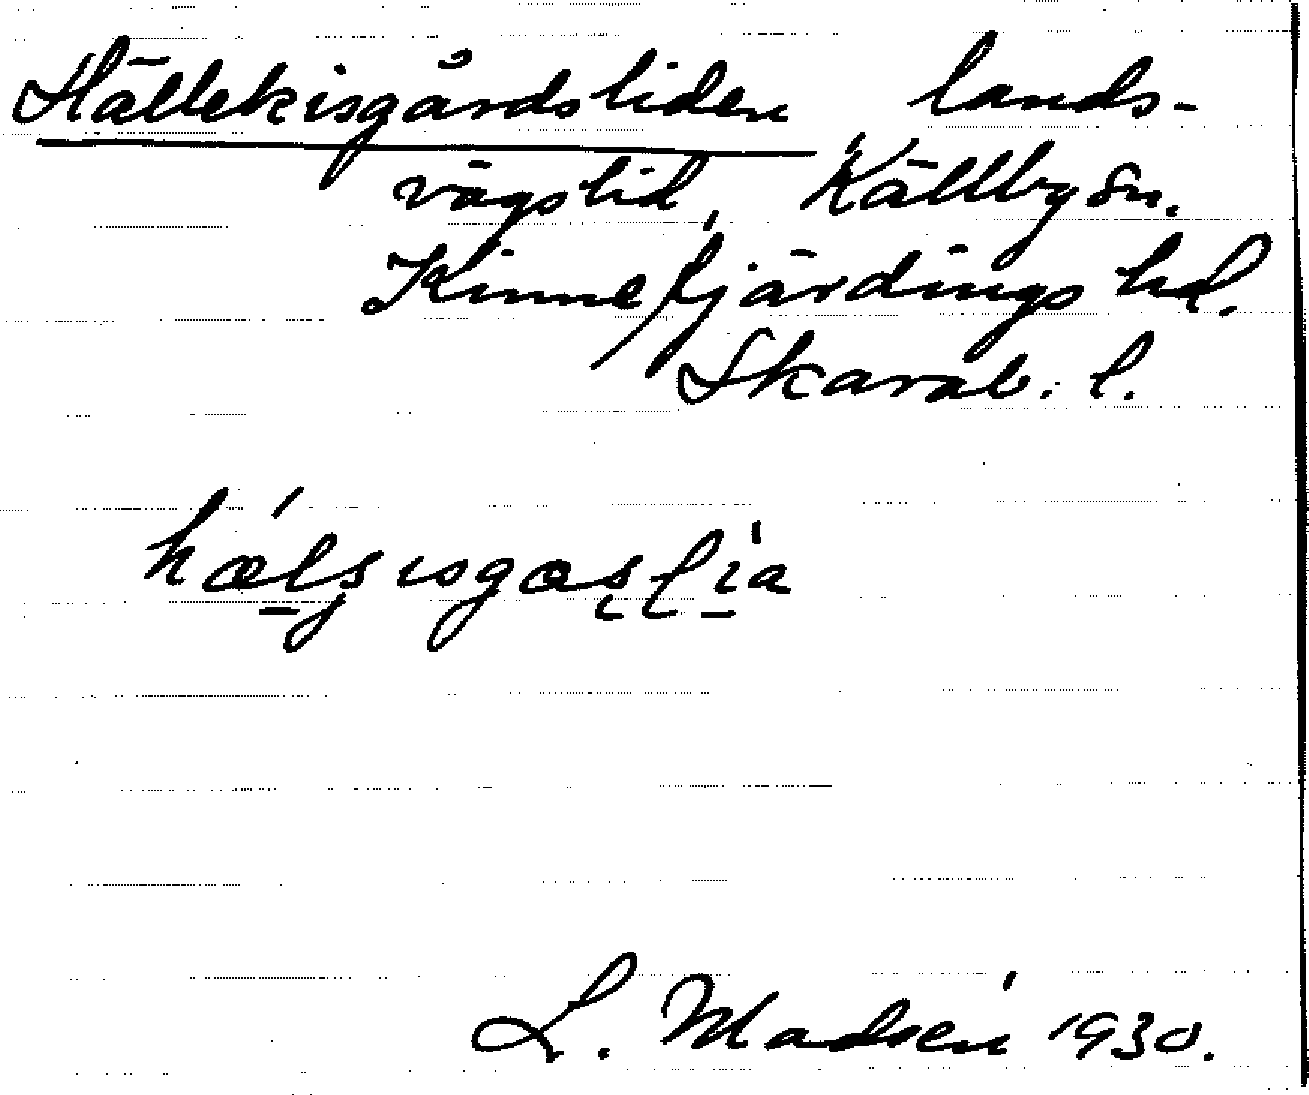 Hällekisgårdsliden lands-
vägslid, Källby sn.
Kinnefjärdings hd.
Skarab. l.
L. Madsén 1930.